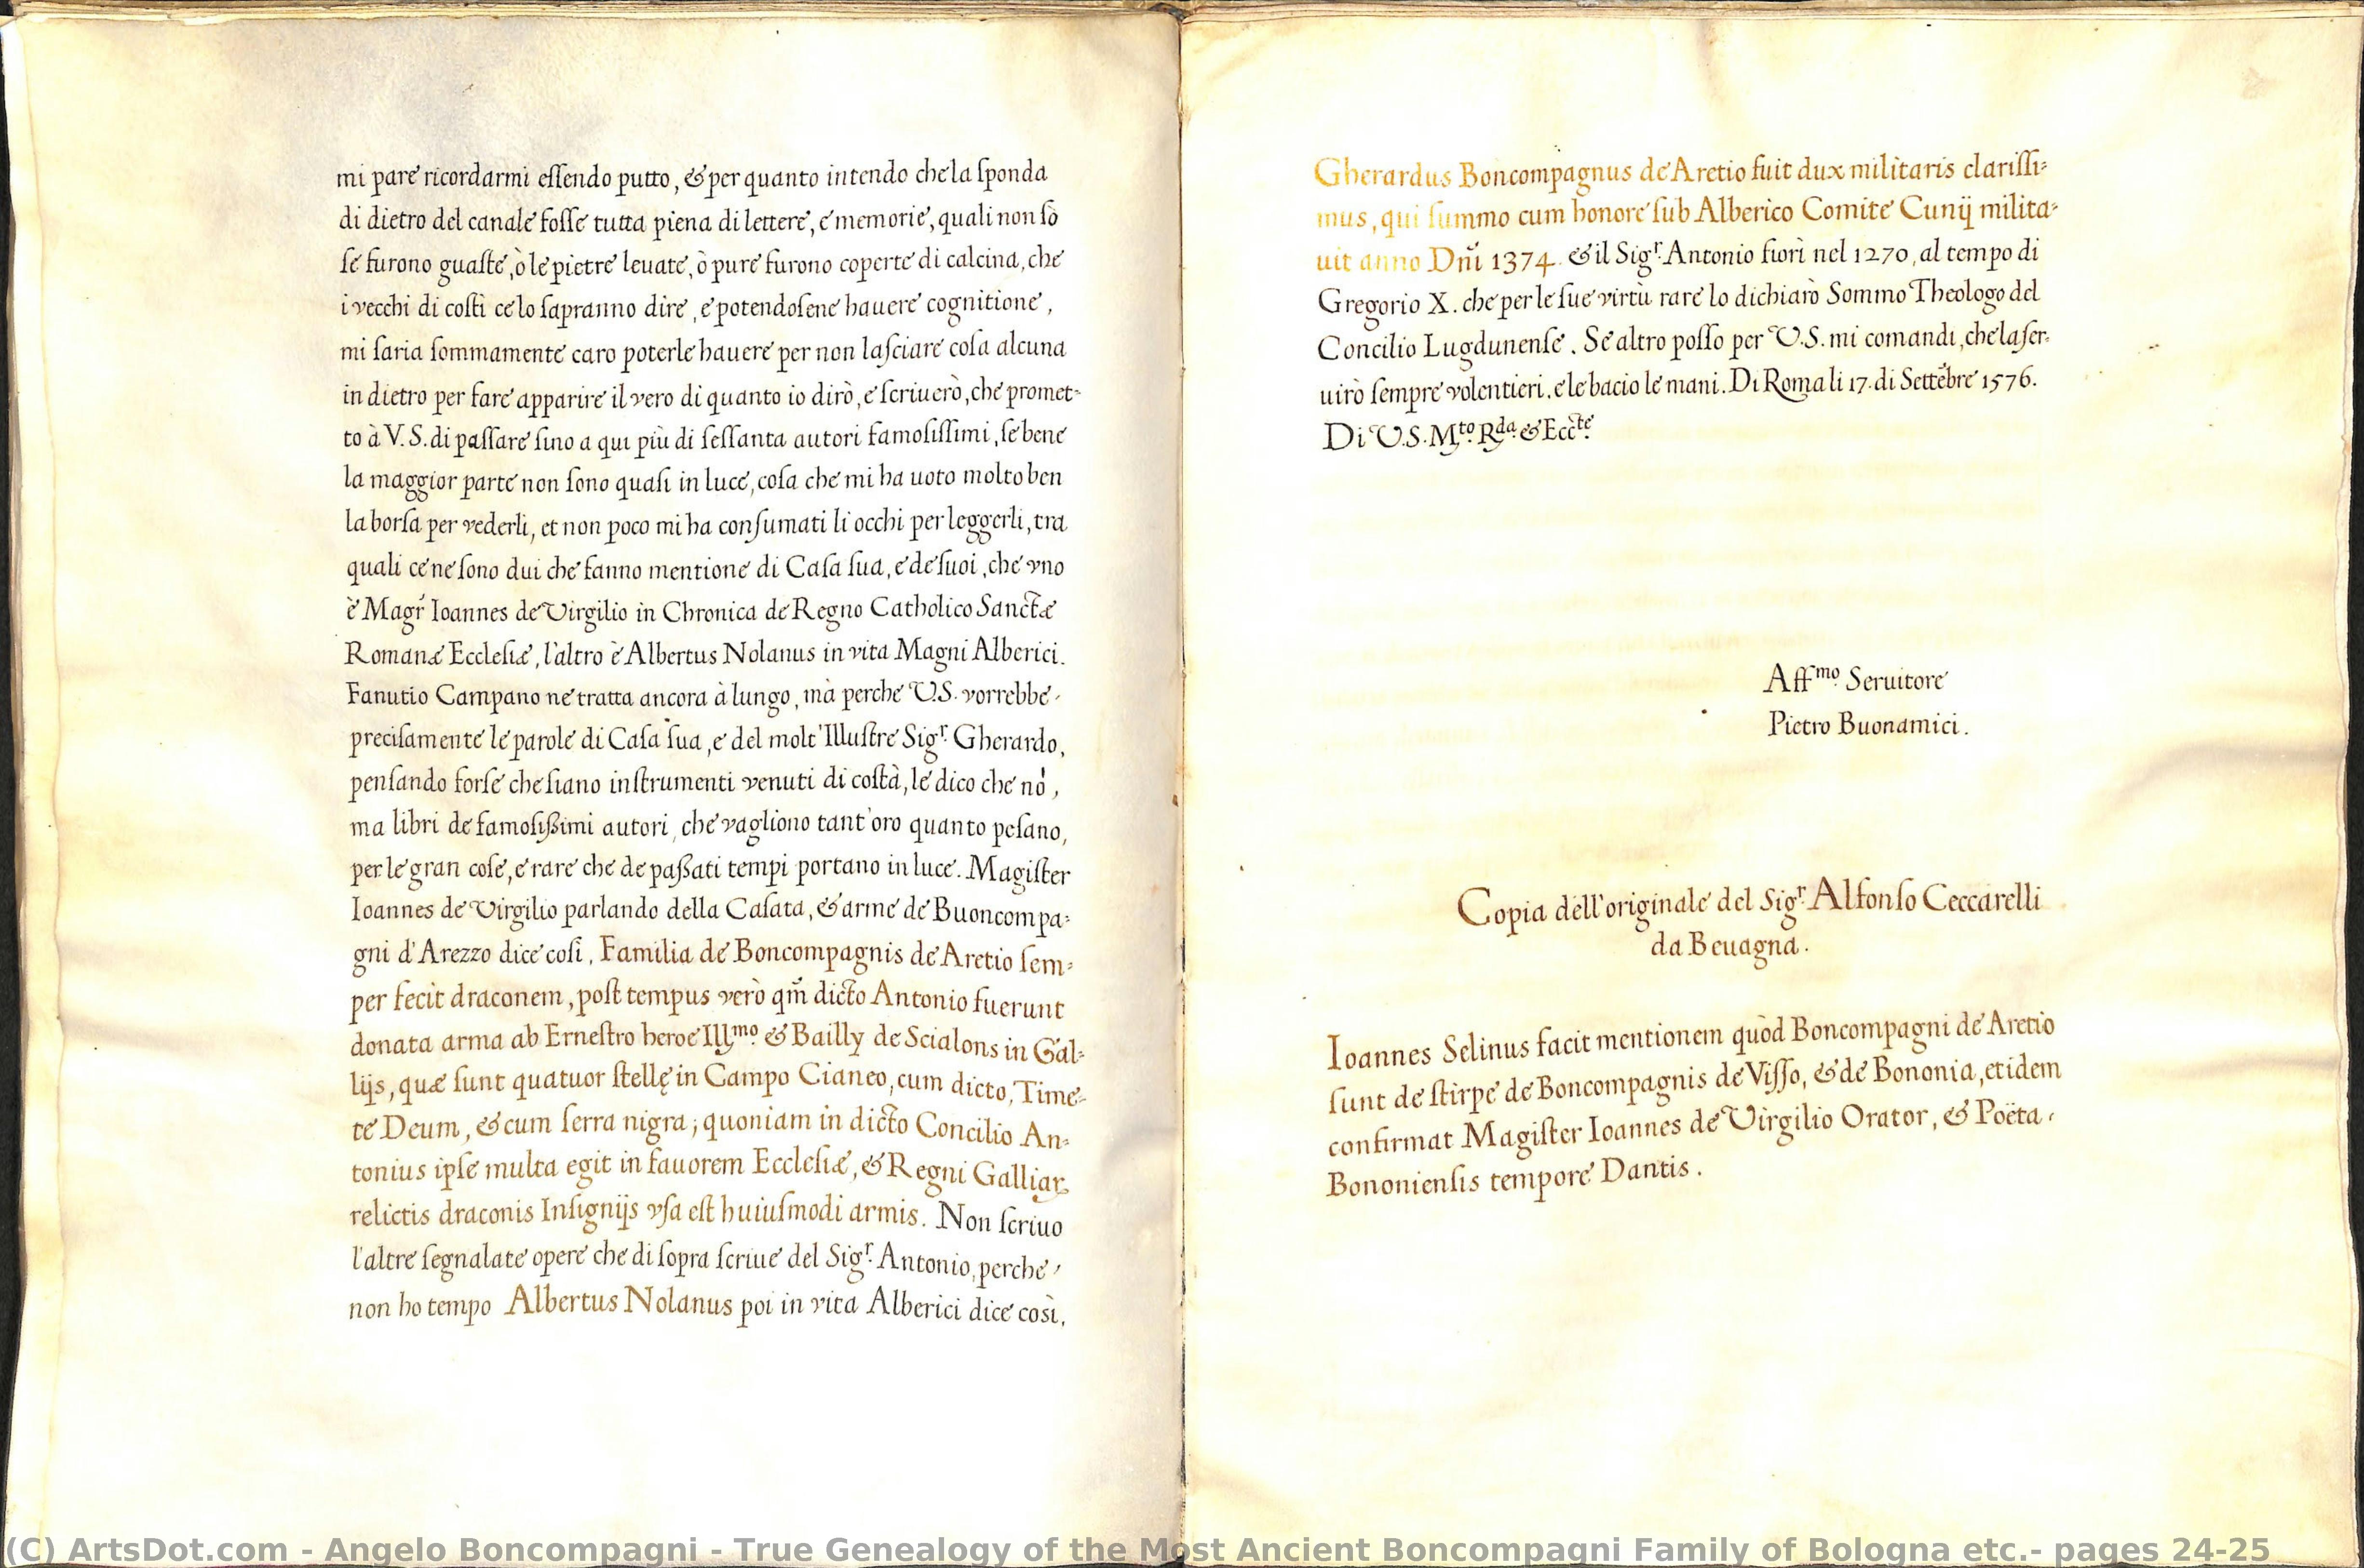 mi pare ricordarmi eſſendo putto, & per quanto intendo che la ſponda
di dietro del canale foſſe tutta piena di lettere, e memorie, quali non ſò
ſe furono guaſte, ò le pietre leuate, ò pure furono coperte di calcina, che
i vecchi di coſti ce lo ſapranno dire, e potendoſene hauere cognitione,
mi ſaria ſommamente caro poterle hauere per non laſciare coſa alcuna
in dietro per fare apparire il vero di quanto io dirò, e ſcriuerò, che promet-
to à V.S. di paſſare ſino a qui più di ſeſſanta autori famoſiſſimi, ſe bene
la maggior parte non ſono quaſi in luce, coſa che mi ha uoto molto ben
la borſa per vederli, et non poco mi ha conſumati li occhi per leggerli, tra
quali ce ne ſono dui che fanno mentione di Caſa ſua, e de ſuoi, che vno
è Magr̃ Ioannes de Virgilio in Chronica de Regno Catholico Sanctæ
Romanæ Eccleſiæ, l'altro è Albertus Nolanus in vita Magni Alberici.
Fanutio Campano ne tratta ancora à lungo, mà perche V.S. vorrebbe
preciſamente le parole di Caſa ſua, e del molt'Illuſtre Sigr. Gherardo,
penſando forſe che ſiano inſtrumenti venuti di coſtà, le dico che nò,
ma libri de famoſißimi autori, che vagliono tant'oro quanto peſano,
per le gran coſe, e rare che de paßati tempi portano in luce. Magiſter
Ioannes de Virgilio parlando della Caſata, & arme de Buoncompa-
gni d'Arezzo dice coſi, Familia de Boncompagnis de Aretio ſem-
per fecit draconem, poſt tempus verò qm̃ dicto Antonio fuerunt
donata arma ab Erneſtro heroe Illmo. & Bailly de Scialons in Gal-
lijs, quæ ſunt quatuor ſtellę in Campo Cianeo, cum dicto, Time-
te Deum, & cum ſerra nigra; quoniam in dicto Concilio An-
tonius ipſe multa egit in fauorem Eccleſiæ, & Regni Galliar,
relictis draconis Inſignijs vſa eſt huiuſmodi armis. Non ſcriuo
l'altre ſegnalate opere che di ſopra ſcriue del Sigr. Antonio, perche
non ho tempo Albertus Nolanus poi in vita Alberici dice così,
Gherardus Boncompagnus de Aretio fuit dux militaris clariſſi-
mus, qui ſummo cum honore ſub Alberico Comite Cunij milita-
uit anno Dñi 1374. & il Sigr. Antonio fiorì nel 1270, al tempo di
Gregorio X. che per le ſue virtù rare lo dichiarò Sommo Theologo del
Concilio Lugdunenſe. Se altro poſſo per V.S. mi comandi, che la ſer-
uirò ſempre volentieri. e le bacio le mani. Di Roma li 17. di Settẽbre 1576.
Di V.S. Mto. Rda. & Eccte.
Affmo. Seruitore
Pietro Buonamici.
Copia dell'originale del Sigr. Alfonſo Ceccarelli
da Beuagna.
Ioannes Selinus facit mentionem quòd Boncompagni de Aretio
ſunt de ſtirpe de Boncompagnis de Viſſo, & de Bononia, et idem
confirmat Magiſter Ioannes de Virgilio Orator, & Poëta
Bononienſis tempore Dantis.
(C) ArtsDot.com - Angelo Boncompagni - True Genealogy of the Most Ancient Boncompagni Family of Bologna etc.- pages 24-25